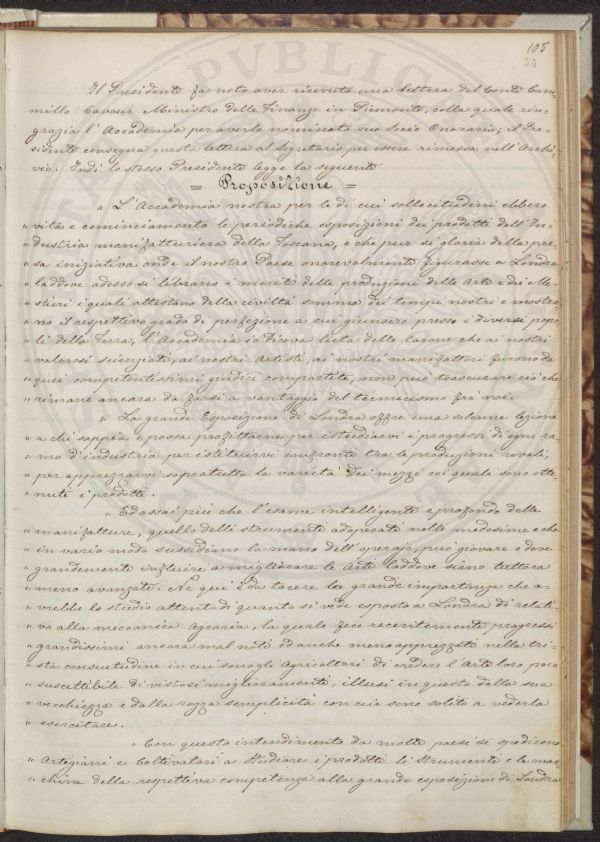 105
84
Il Presidente fa noto aver ricevuta una lettera del Conte Cam-
millo Cavour Ministro delle Finanze in Piemonte, colla quale rin-
grazia l'Accademia per averlo nominato suo Socio Onorario; il Pre-
sidente consegna questa lettera al Segretario per essere rimessa nell'Archi-
vio. Indi lo stesso Presidente legge la seguente
= Proposizione =
" L'Accademia nostra per le di cui sollecitudini ebbero
" vita e cominciamento le periodiche esposizioni dei prodotti dell'In-
" dustria manifatturiera della Toscana, e che pur si gloria della pre-
" sa iniziativa onde il nostro Paese onorevolmente figurasse a Londra
" laddove adesso si librano i meriti delle produzioni delle Arti e dei Me-
" stieri i quali attestano della civiltà somma dei tempi nostri e mostra-
" no il respettivo grado di perfezione a cui giunsero presso i diversi popo-
" li della Terra, l'Accademia io diceva lieta delle lodi che ai nostri
" valorosi scienziati, ai nostri Artisti, ai nostri manifattori furono da
" quei competentissimi giudici compartite, non può trascurare ciò che
" rimane ancora da farsi a vantaggio del tecnicismo fra noi.
" La grande Esposizione di Londra offre una solenne lezione
" a chi sappia e possa profittarne per istudiarvi i progressi di ogni ra-
" mo d'industria per istituirvi confronti tra le produzioni rivali,
" per apprezzarvi sopratutto la varietà dei mezzi coi quali sono otte-
" nuti i prodotti.
" Ed assai più che l'esame intelligente e profondo delle
" manifatture, quello delli strumenti adoperati nelle medesime e che
" in vario modo sussidiano la mano dell'operajo, può giovare e deve
" grandemente influire a migliorare le Arti laddove siano tuttora
" meno avanzate. Nè qui è da tacere la grande importanza che a-
" vrebbe lo studio attento di quanto si vede esposto a Londra di relati-
" vo alla meccanica Agraria, la quale fece recentemente progressi
" grandissimi ancora mal noti ed anche meno apprezzati nella tri-
" sta consuetudine in cui sono gli Agricoltori di credere l'Arte loro poco
" suscettibile di vistosi miglioramenti, illusi in questo dalla sua
" vecchiezza e dalla rozza semplicità con cui sono soliti a vederla
" esercitare.
" Con questo intendimento da molti paesi si spedirono
" Artegiani e Coltivatori a studiare i prodotti li strumenti e le mac-
" chine della respettiva competenza alla grande esposizione di Londra